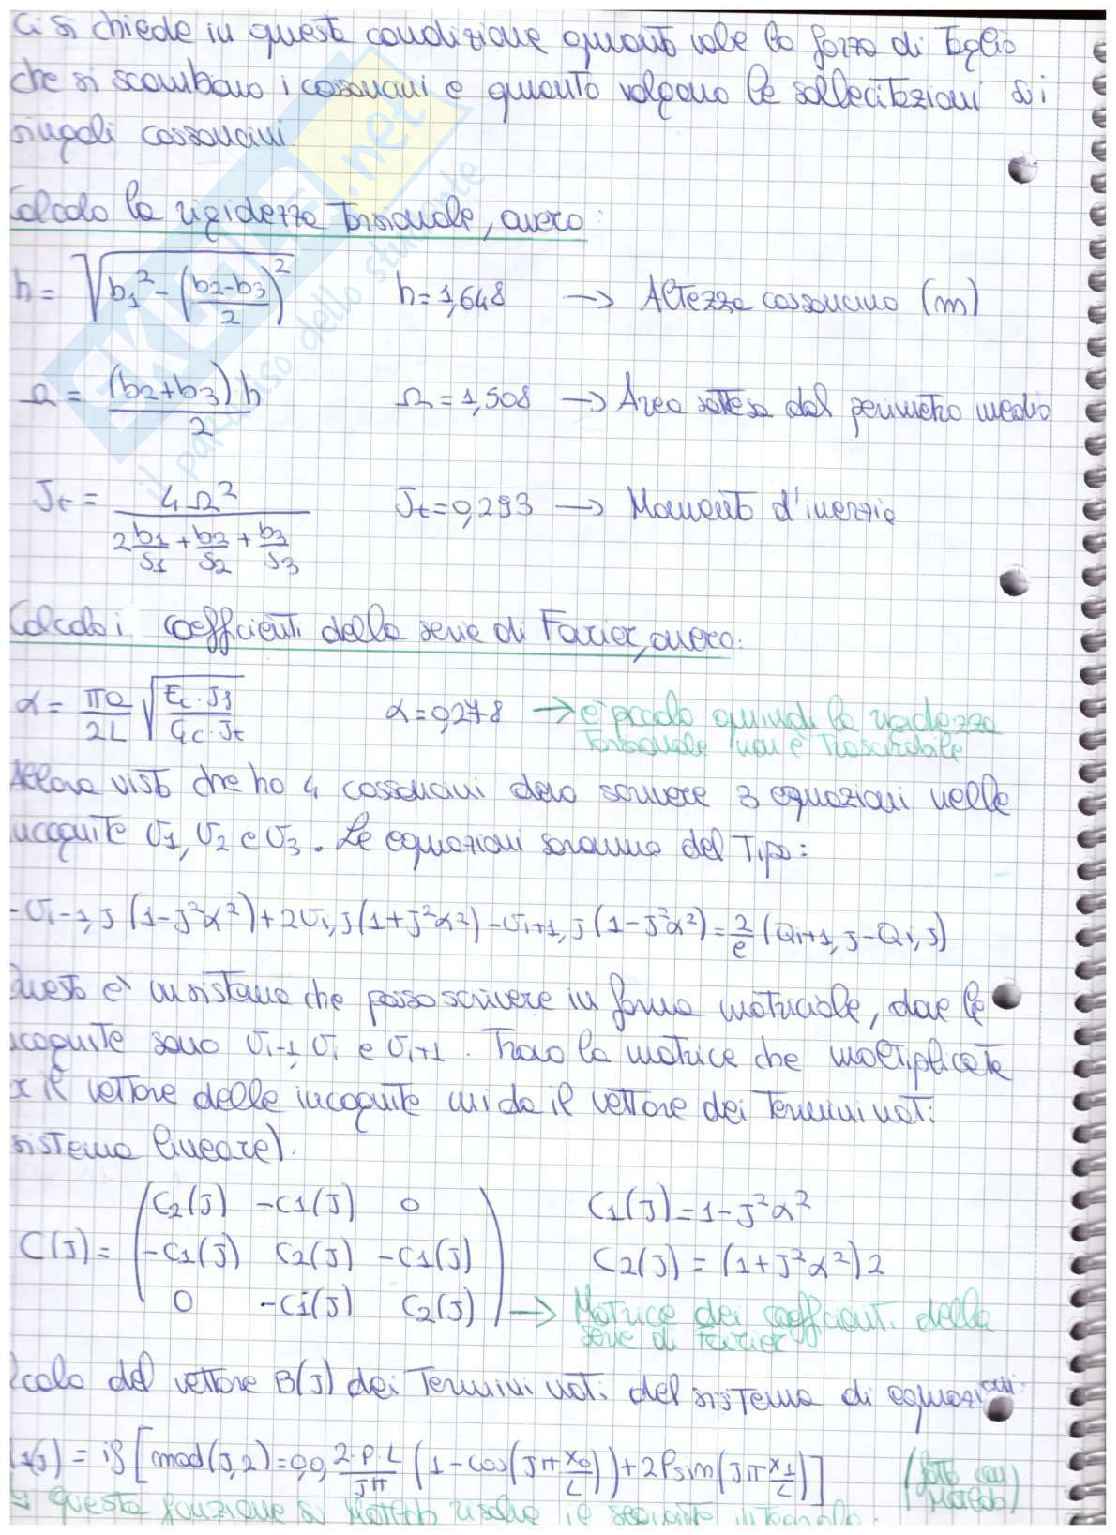 Ci si chiede in questa condizione quanto vale la forza di Taglio
che si scambiano i cassoncini e quanto valgono le sollecitazioni sui
singoli cassoncini.
Calcolo la rigidezza Torsionale, ovvero:
h = √(b1² - ((b2-b3)/2)²) h = 1,648 → Altezza cassoncino (m)
Ω = (b2+b3)h / 2 Ω = 1,508 → Area sottesa dal perimetro medio
Jt = 4Ω² / (2 b1/s1 + b2/s2 + b3/s3) Jt = 0,293 → Momento d'inerzia
Calcolo i coefficienti della serie di Fourier, ovvero:
α = πe/2L √(Ec·Jf / Gc·Jt) α = 0,278 → e' piccolo quindi la rigidezza
Torsionale non è Trascurabile
Allora visto che ho 4 cassoncini devo scrivere 3 equazioni nelle
incognite U1, U2 e U3. Le equazioni saranno del Tipo:
-Ui-1,J (1-J²α²) + 2Ui,J (1+J²α²) - Ui+1,J (1-J²α²) = 2/e (Qi+1,J - Qi,J)
Questo è un sistema che posso scrivere in forma matriciale, dove le
incognite sono Ui-1, Ui e Ui+1. Trovo la matrice che moltiplicata
x il vettore delle incognite mi da il vettore dei Termini noti
sistema lineare).
C2(J) -C1(J) 0 C1(J) = 1-J²α²
C(J) = -C1(J) C2(J) -C1(J) C2(J) = (1+J²α²)2
0 -C1(J) C2(J) → Matrice dei coefficienti della
serie di Fourier
calcolo del vettore B(J) dei Termini noti del sistema di equazioni:
(J) = if [mod(J,2)=0,0, 2·P·L/Jπ (1-cos(Jπ x0/L)) + 2P sim(Jπ x1/L)] (fatto con
Matcad)
questa funzione di Matcad risolve il seguente integrale:
il paradiso dello studente
.net